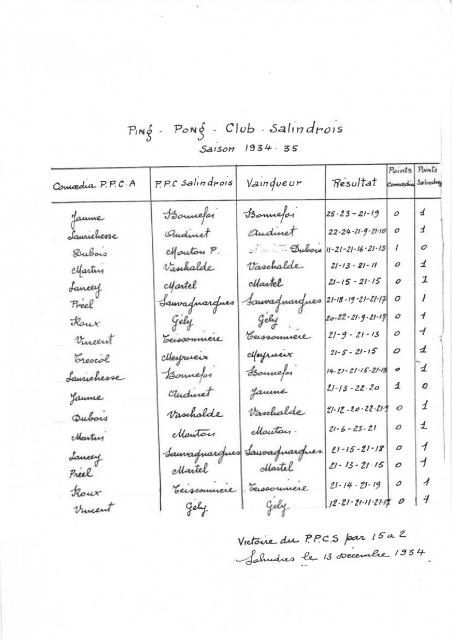 Ping - Pong - Club - Salindrois
Saison 1934-35
Comœdia P.P.C.A P.P.C Salindrois Vainqueur Résultat Points Comœdia Points Salindres
Jaume Bonnefoi Bonnefoi 25-23-21-19 0 1
Laurichesse Audinet Audinet 22-24-21-9-21-10 0 1
Dubois Mouton P. Dubois 11-21-21-16-21-13 1 0
Martin Vaschalde Vaschalde 21-13-21-11 0 1
Lancey Martel Martel 21-15-21-15 0 1
Préel Sauvagnargues Sauvagnargues 21-18-19-21-21-17 0 1
Roux Gély Gély 20-22-21-9-21-19 0 1
Vincent Teissonnière Teissonnière 21-9-21-13 0 1
Trescol Meyrueix Meyrueix 21-5-21-15 0 1
Laurichesse Bonnefoi Bonnefoi 14-21-21-15-21-18 0 1
Jaume Audinet Jaume 21-13-22-20 1 0
Dubois Vaschalde Vaschalde 21-12-20-22-21-9 0 1
Martin Mouton Mouton 21-6-23-21 0 1
Lancey Sauvagnargues Sauvagnargues 21-15-21-18 0 1
Préel Martel Martel 21-13-21-15 0 1
Roux Teissonnière Teissonnière 21-14-21-19 0 1
Vincent Gély Gély 12-21-21-11-21-17 0 1
Victoire du P.P.C.S par 15 a 2
Salindres le 13 Décembre 1934